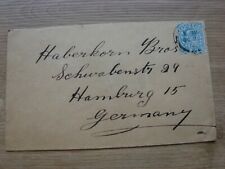 Haberkorn Bros
Schwabenstr 29
Hamburg 15
Germany